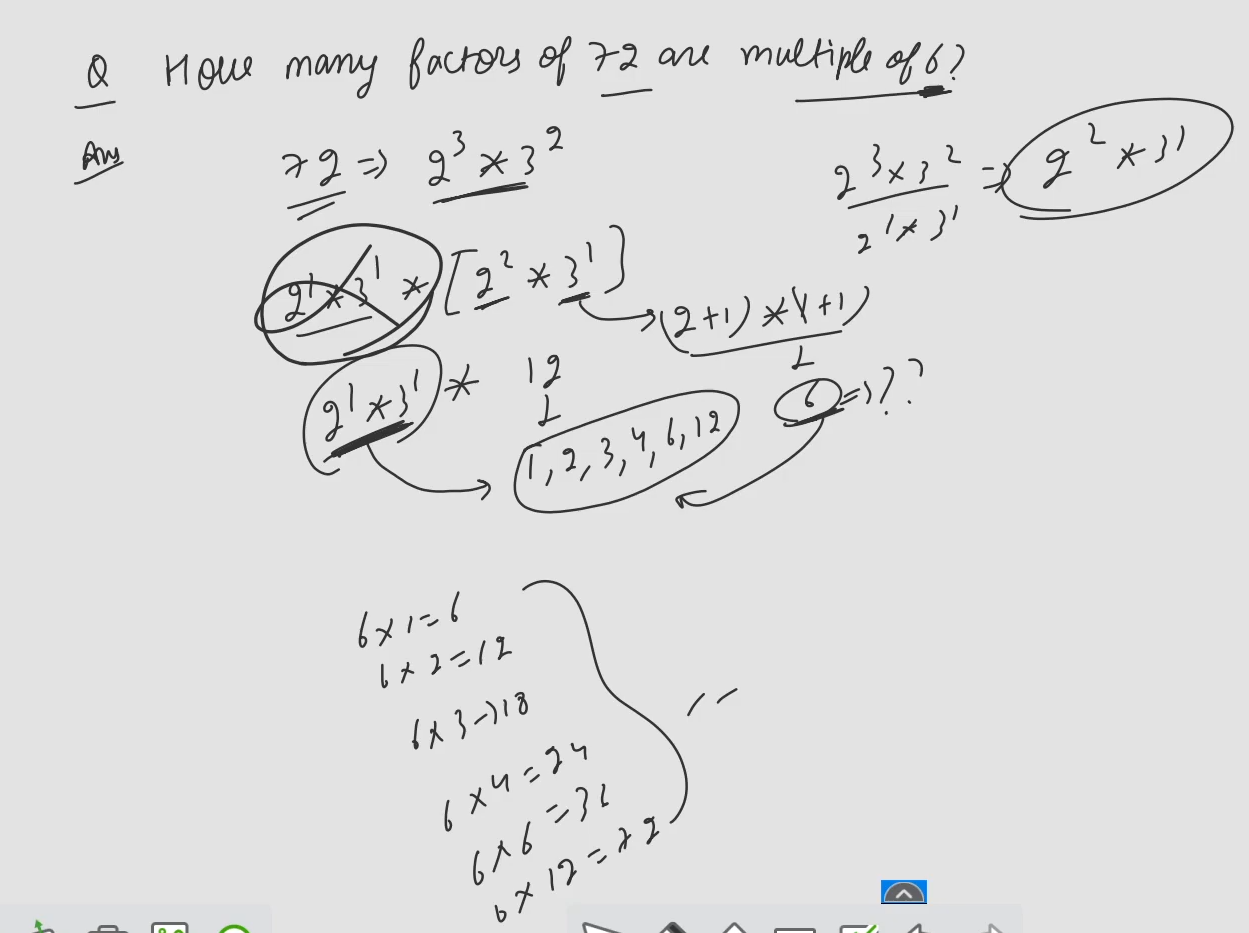 Q How many factors of 72 are multiple of 6?
Ans
72 => 2³ * 3²
2³ x 3² / 2¹ * 3¹ => 2² * 3¹
2¹ * 3¹ * [2² * 3¹]
(2+1) * (1+1)
6 => ??
2¹ * 3¹ * 12
1, 2, 3, 4, 6, 12
6 x 1 = 6
6 x 2 = 12
6 x 3 -> 18
6 x 4 = 24
6 x 6 = 36
6 x 12 = 72